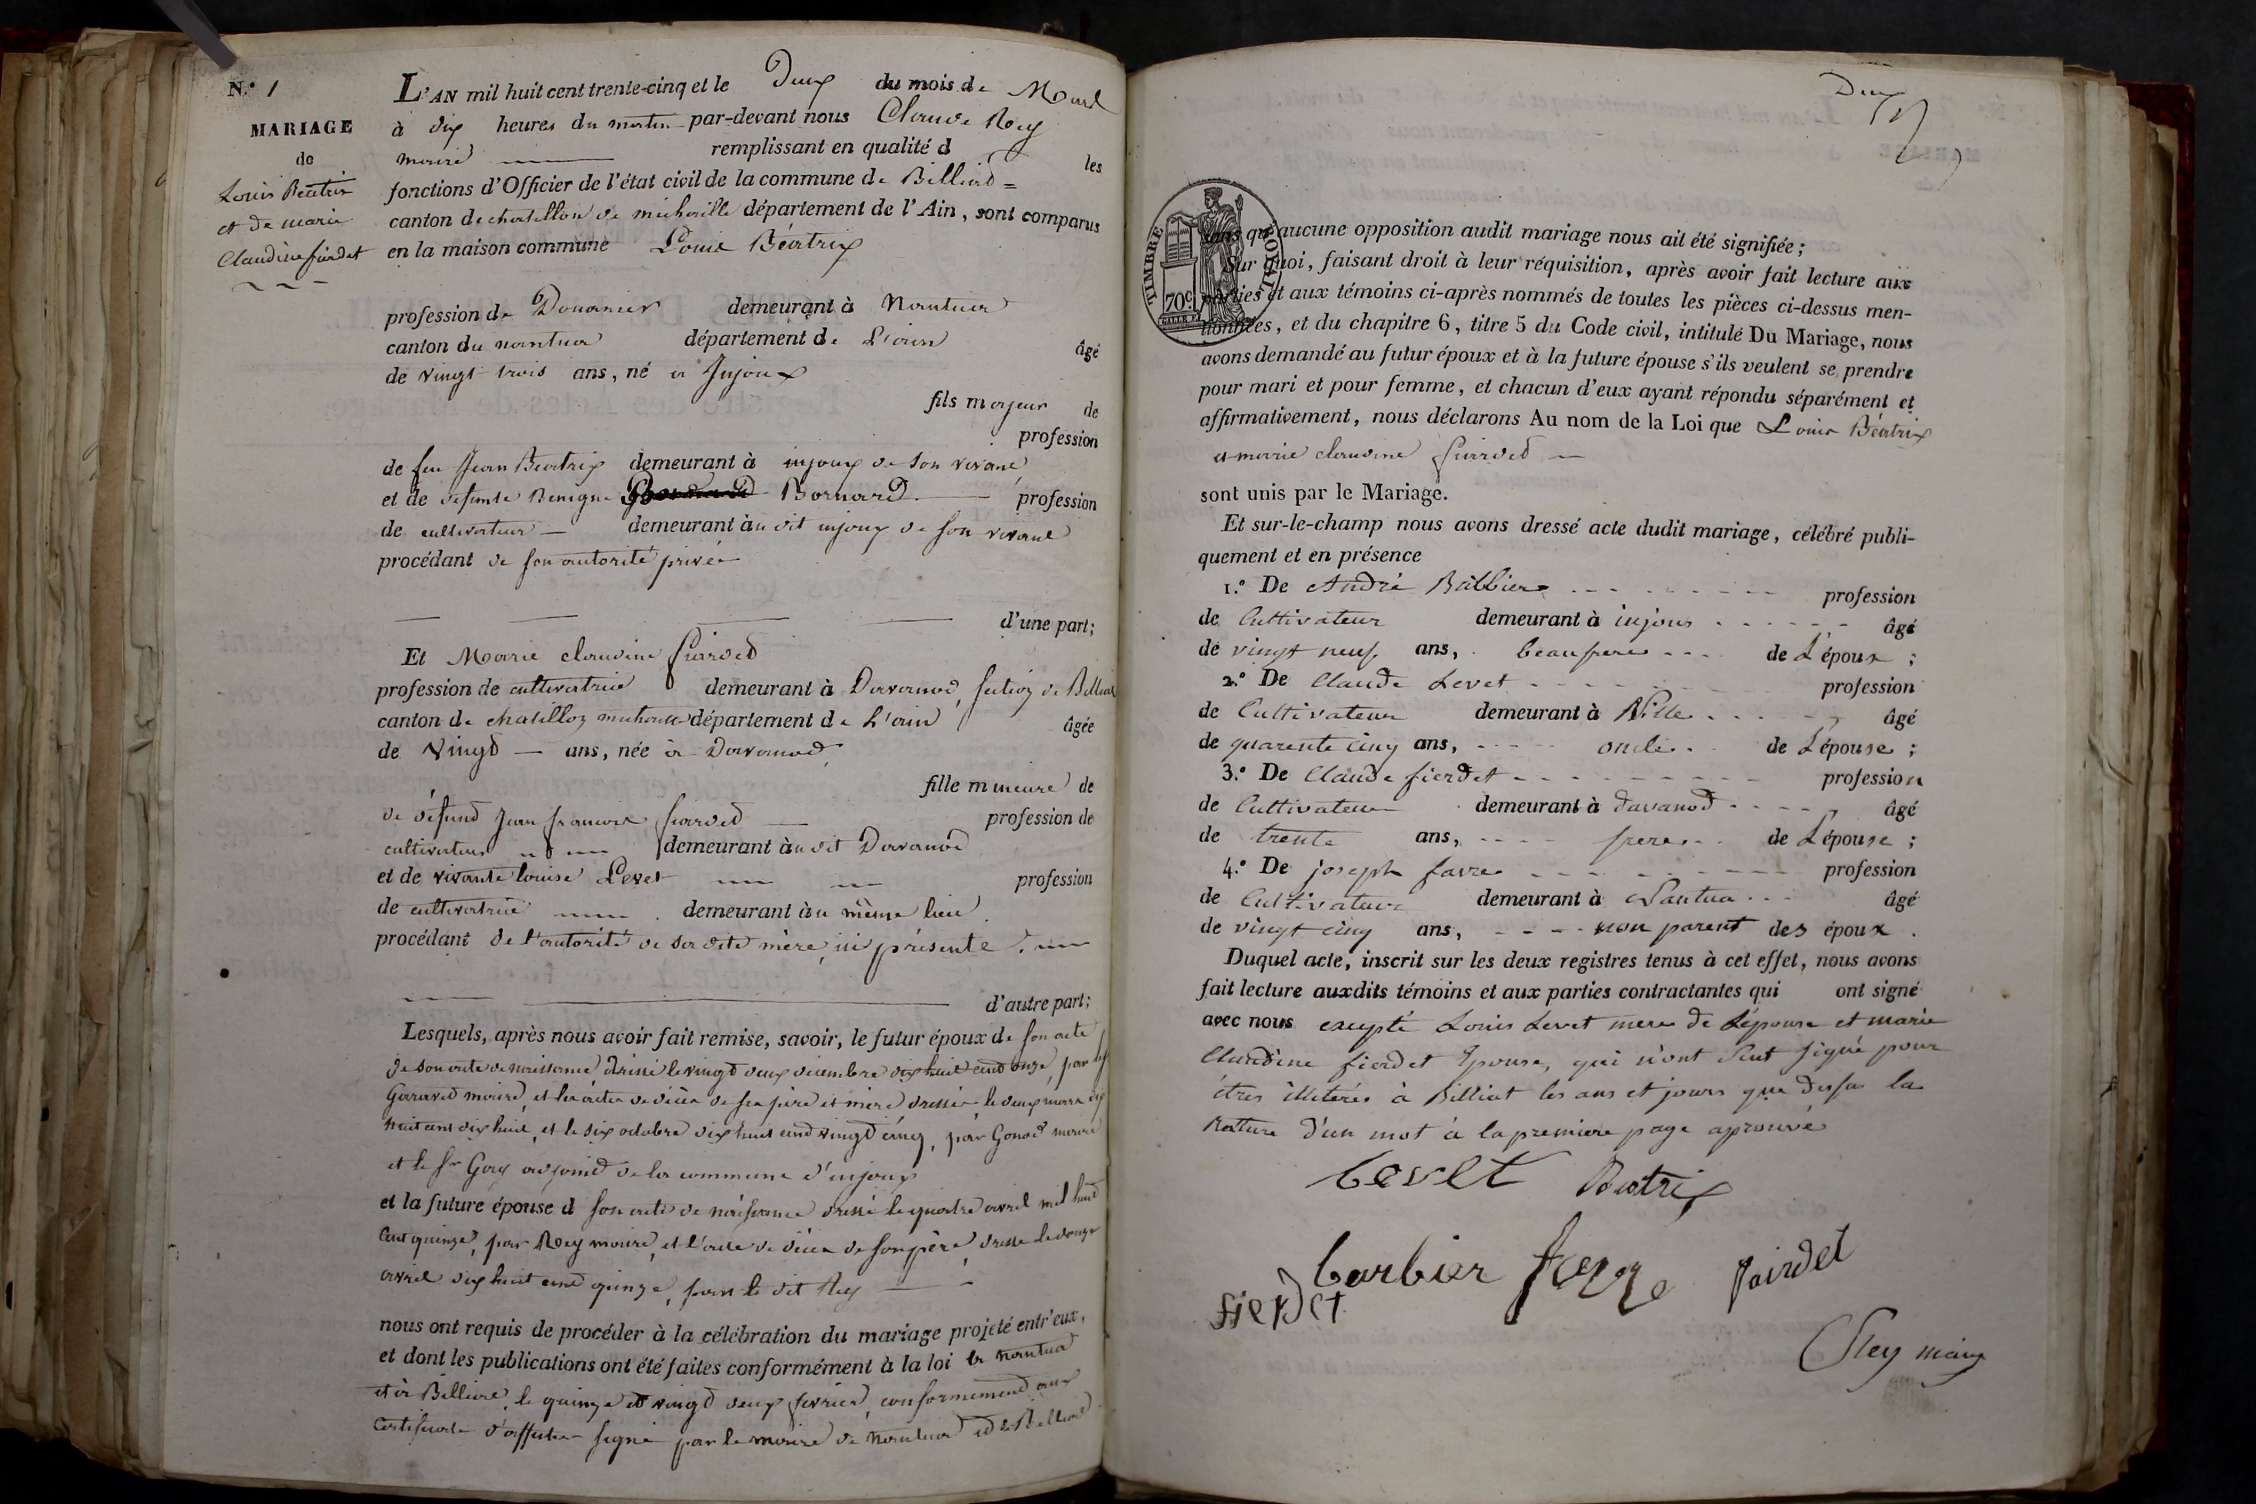 N.° 1
MARIAGE
de
Louis Béatrix
et de marie
Claudine fierdet
L'AN mil huit cent trente-cinq et le Deux du mois de Mars
à dix heures du matin par-devant nous Claude Rey
maire remplissant en qualité d les
fonctions d'Officier de l'état civil de la commune de Billiat =
canton de chatillon de michaille département de l'Ain, sont comparus
en la maison commune Louis Béatrix
profession de Douanier demeurant à Nantua
canton du nantua département de L'ain âgé
de vingt trois ans, né à Injoux
fils majeur de
profession
de feu Jean Béatrix demeurant à injoux de son vivant
et de défunte Benigne Bornard profession
de cultivateur demeurant àu dit injoux de son vivant
procédant de son autorité privée
d'une part;
Et Marie claudine fiardet
profession de cultivatrice demeurant à Davanod, section de Billiat
canton de chatillon michaille département de L'ain âgée
de Vingt ans, née à Davanod
fille mineure de
de défund Jean francois fiardet profession de
cultivateur demeurant àu dit Davanod
et de vivante louise Levet profession
de cultivatrice demeurant àu même lieu
procédant de l'autorité de sa dite mère, ici présente.
d'autre part;
Lesquels, après nous avoir fait remise, savoir, le futur époux de son acte
de son acte de naissance dressé le vingt deux decembre dix huit cent onze, par
maire, et les actes de décès de ses père et mère dressés le deux mars dix
huit cent dix huit, et le six octobre dix huit cent vingt cinq, par Gonod maire
et le Sr Goy adjoint de la commune d'injoux
et la future épouse d son acte de naissance dressé le quatre avril mil huit
cent quinze, par Rey maire, et l'acte de décès de son père, dressé le douze
avril dix huit cent quinze, par le dit Rey
nous ont requis de procéder à la célébration du mariage projeté entr'eux,
et dont les publications ont été faites conformément à la loi à nantua
et à Billiat, le quinze et vingt deux fevrier, conformement aux
certificats d'affiches signé par le maire de nantua et de Billiat
Deux
TIMBRE ROYAL
70c
sans qu'aucune opposition audit mariage nous ait été signifiée;
Sur quoi, faisant droit à leur réquisition, après avoir fait lecture aux
parties et aux témoins ci-après nommés de toutes les pièces ci-dessus men-
tionnées, et du chapitre 6, titre 5 du Code civil, intitulé Du Mariage, nous
avons demandé au futur époux et à la future épouse s'ils veulent se prendre
pour mari et pour femme, et chacun d'eux ayant répondu séparément et
affirmativement, nous déclarons Au nom de la Loi que Louis Béatrix
et marie claudine fiardet
sont unis par le Mariage.
Et sur-le-champ nous avons dressé acte dudit mariage, célébré publi-
quement et en présence
1.° De André Balbier profession
de Cultivateur demeurant à injoux âgé
de vingt neuf ans, beaufrere de L'époux ;
2.° De Claude Levet profession
de Cultivateur demeurant à Ville âgé
de quarente cinq ans, oncle de L'épouse ;
3.° De Claude fierdet profession
de Cultivateur demeurant à davanod âgé
de trente ans, frere de L'épouse ;
4.° De joseph favre profession
de Cultivateur demeurant à Nantua âgé
de vingt cinq ans, non parent des époux .
Duquel acte, inscrit sur les deux registres tenus à cet effet, nous avons
fait lecture auxdits témoins et aux parties contractantes qui ont signé
avec nous excepté Louis Levet mere de L'épouse et marie
Claudine fierdet Epouse, qui n'ont seut signé pour
êtres illitérés à Billiat les ans et jours que dessu la
Rature d'un mot à la premiere page aprouvé
Levet Beatrix
barbier favre fairdet
fierdet
Rey maire